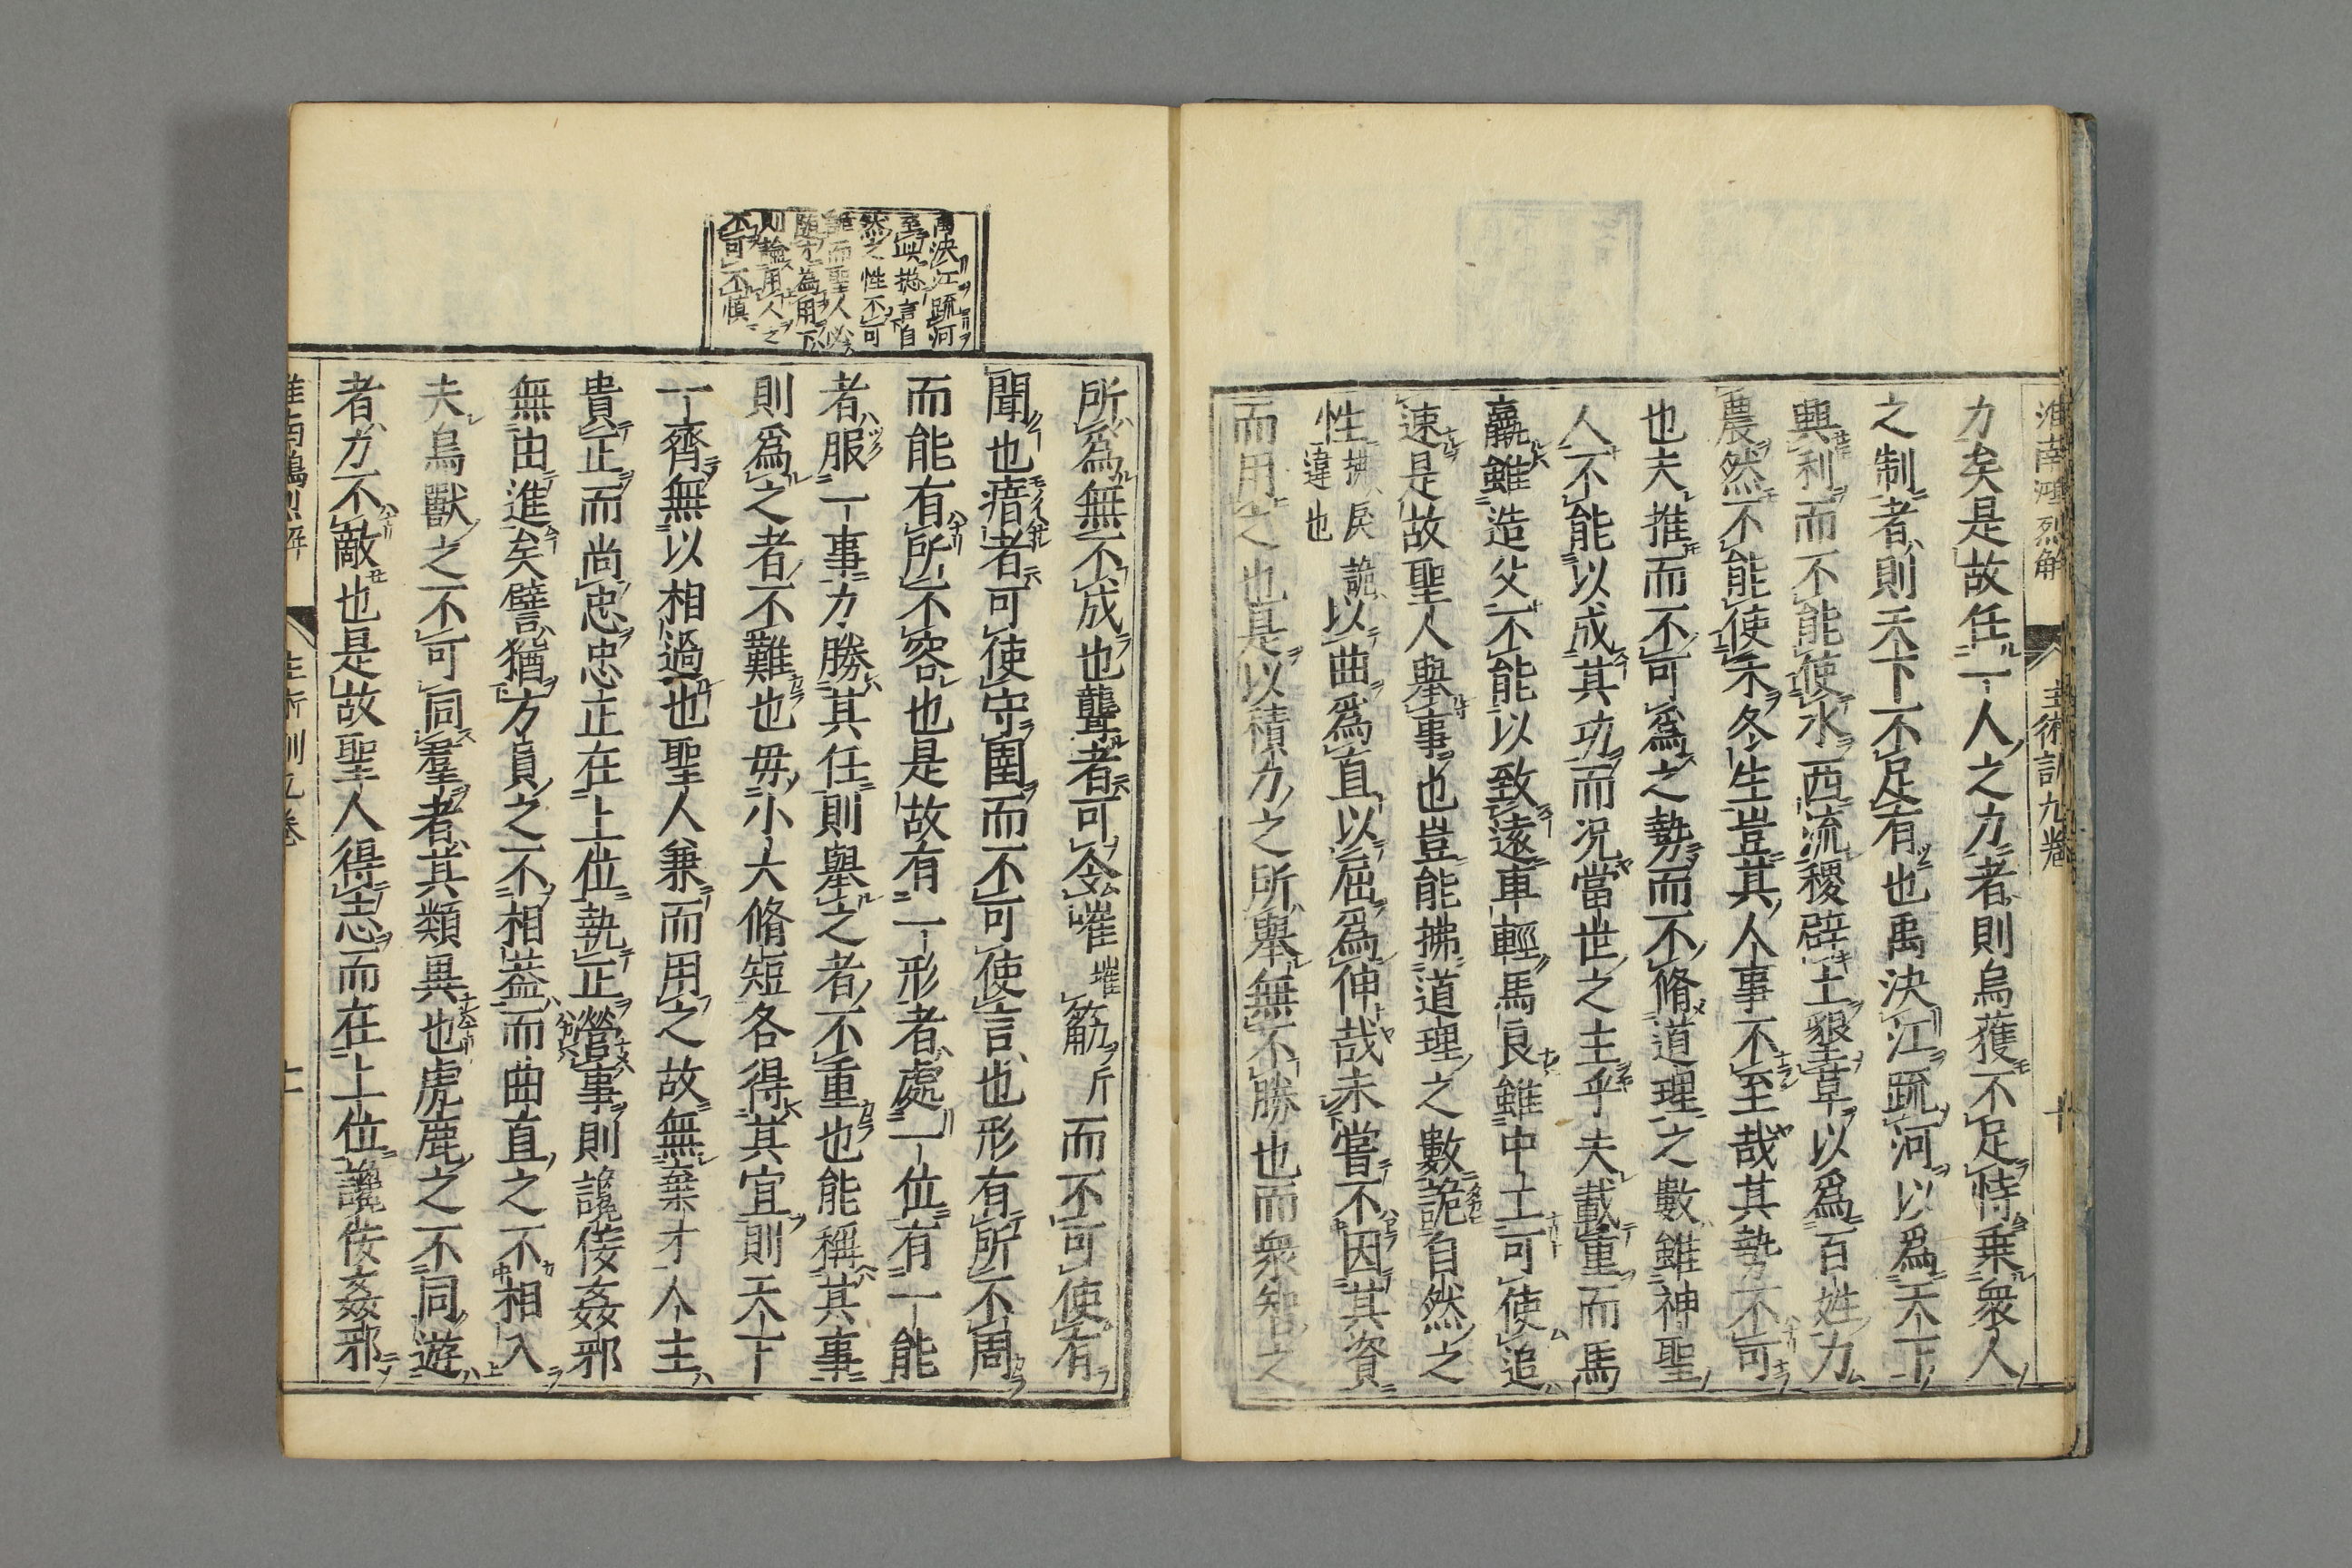 淮南鴻烈解 主術訓九卷 十
力矣是故任一人之力者則烏獲不足恃乗衆人
之制者則天下不足有也禹決江疏河以爲天下
興利而不能使水西流稷辟土墾草以爲百姓力
農然不能使禾冬生豈其人事不至哉其勢不可
也夫推而不可爲之勢而不脩道理之數雖神聖
人不能以成其功而況當世之主乎夫載重而馬
羸雖造父不能以致遠車輕馬良雖中土可使追
速是故聖人舉事也豈能拂道理之數詭自然之
性拂戾違也詭以曲爲直以屈爲伸哉未嘗不因其資
而用之也是以積力之所舉無不勝也而衆知之
禹決江疏河
至此揔言自
然之性不可
詭而聖人必
隨才為用下
則論用人之
不可不慎
所爲無不成也聾者可令嗺㠑筋斤而不可使有
聞也瘖者可使守圉而不可使言也形有所不周
而能有所不容也是故有一形者處一位有一能
者服一事力勝其任則舉之者不重也能稱其事
則爲之者不難也毋小大脩短各得其宜則天下
一齊無以相過也聖人兼而用之故無棄才人主
貴正而尚忠忠正在上位執正營事則讒佞姦邪
無由進矣譬猶方員之不相葢而曲直之不相入
夫鳥獸之不可同羣者其類異也虎鹿之不同遊
者力不敵也是故聖人得志而在上位讒佞姦邪
淮南鴻烈解 主術訓九卷 十一